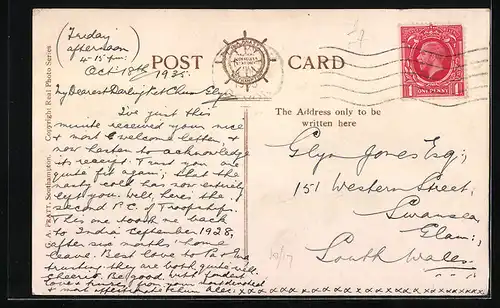 Friday
afternoon
4-15 p.m.
Oct 18th 1935.
POST CARD
My Dearest Darling Pet Chum Glyn
I've just this
minute received your nice
& most welcome letter, &
now hasten to acknowledge
its receipt. Trust you are
quite fit again, & that the
nasty cold has now entirely
left you. Well, here's the
second P.C. of Troopship
This one took me back
to India September 1928,
after six months' home
leave. Best love to Pa & Ma
trusting they are both quite well.
Cheerio. Be good, with fondest
love & from your
& most affectionate Chum Alec. x x x x x x x x x x x x x
The Address only to be
written here
Glyn Jones Esq;
151 Western Street,
Swansea
Glam;
South Wales.
ONE PENNY
1 1
A. PRATT, Southampton. Copyright Real Photo Series